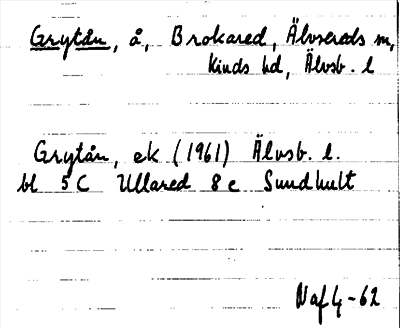 Grytån, å, Brokared, Älvsereds sn,
Kinds hd, Älvsb. l
Grytån, ek (1961) Älvsb. l.
bl 5C Ullared 8 e Sundhult
Naf4-62